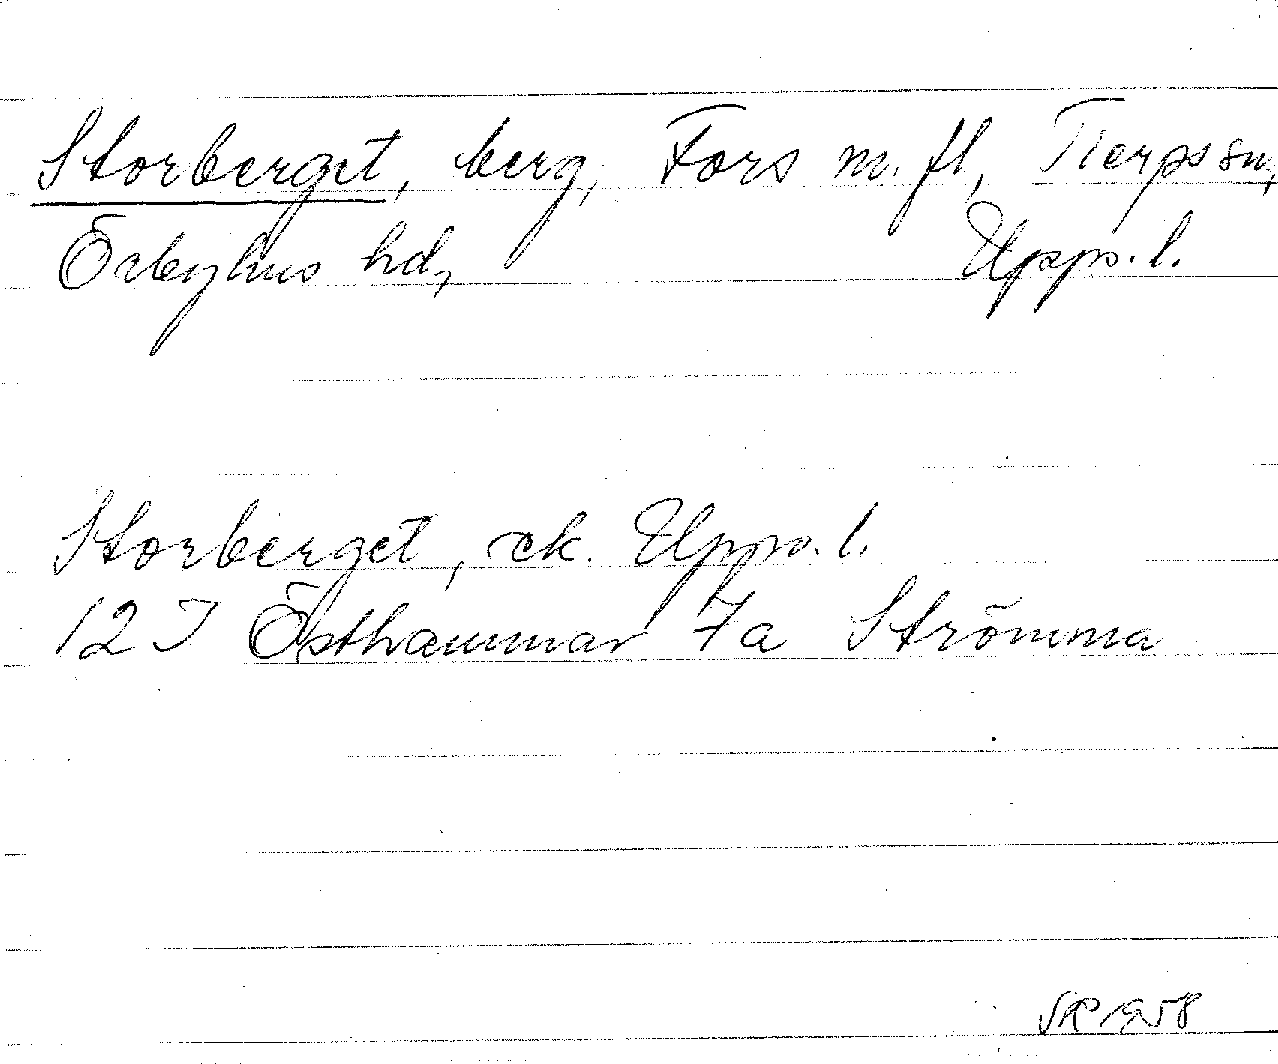 Storberget, berg, Fors m. fl, Tierps sn,
Örbyhus hd, Upps. l.
Storberget, ek. Upps. l.
12 I Östhammar 7a Strömma
1958